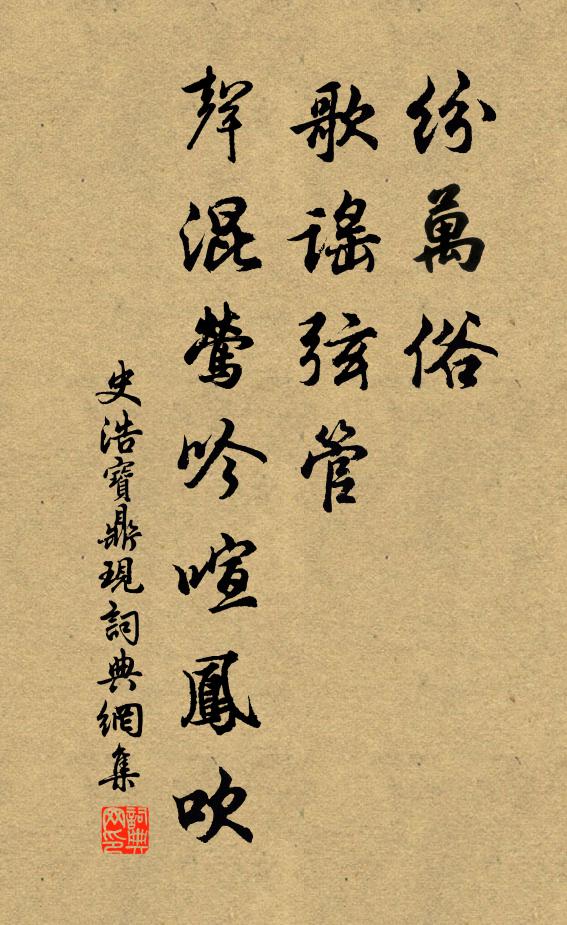 紛萬俗
歌謠弦管
聲混鶯吟喧鳳吹
史浩寶鼎現詞典網集
詞典网印